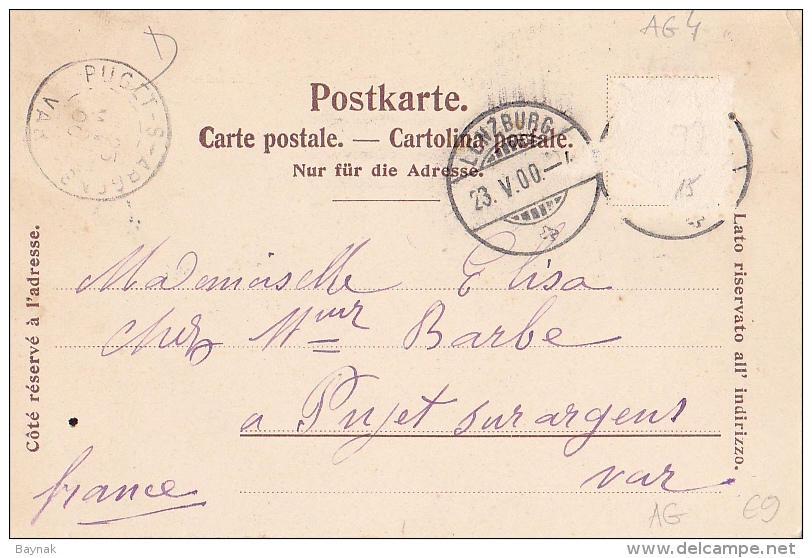 AG 4
PUGET-S-ARGENS
25
00
VAR
Postkarte.
Carte postale. — Cartolina postale.
Nur für die Adresse.
LENZBURG
23. V. 00.
15
Côté réservé à l'adresse.
Lato riservato all' indirizzo.
Mademoiselle Elisa
chez Mme Barbe
a Pujet sur argens
var
france
AG
€9
Baynak
www.delcampe.net